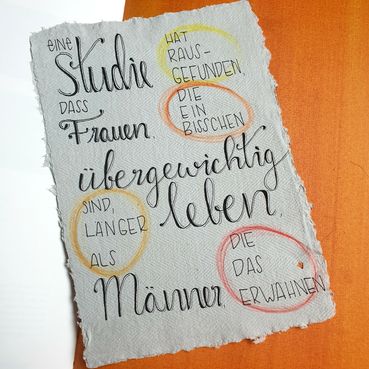 EINE
Studie
HAT
RAUS-
GEFUNDEN,
DASS
Frauen,
DIE
EIN
BISSCHEN
übergewichtig
SIND,
LÄNGER
leben,
ALS
Männer,
DIE
DAS
ERWÄHNEN